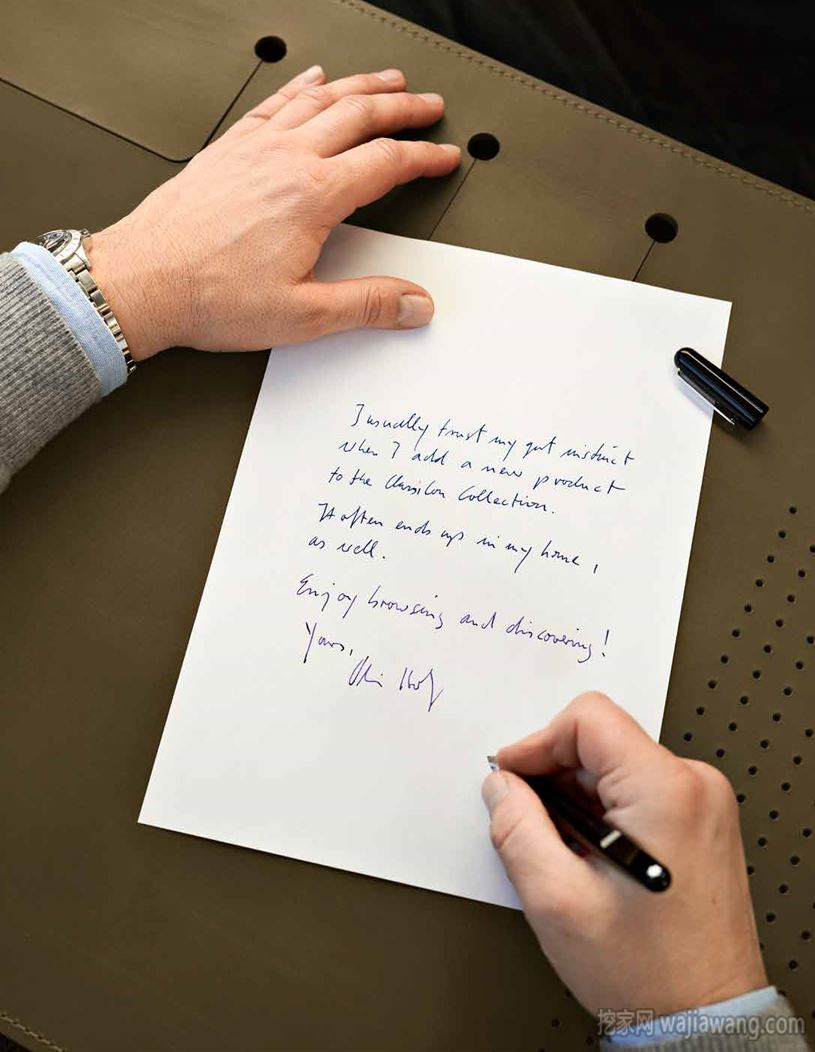 I usually trust my gut instinct
when I add a new product
to the ClassiCon Collection.
It often ends up in my home,
as well.
Enjoy browsing and discovering!
Yours,
挖家网 wajiawang.com